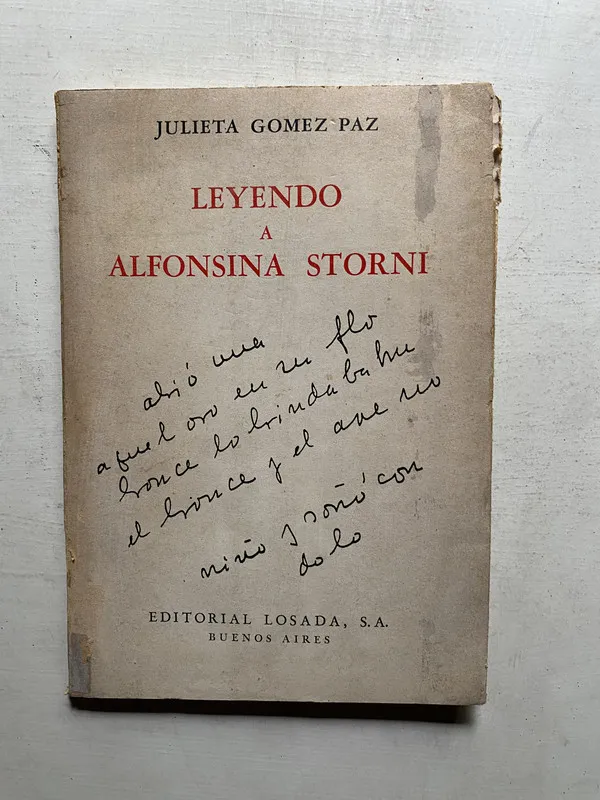 JULIETA GOMEZ PAZ
LEYENDO
A
ALFONSINA STORNI
abrió una
aquel oro en su flo
bronce lo brindaba hu
el bronce y el ave no
niño y soñó con
do lo
EDITORIAL LOSADA, S.A.
BUENOS AIRES